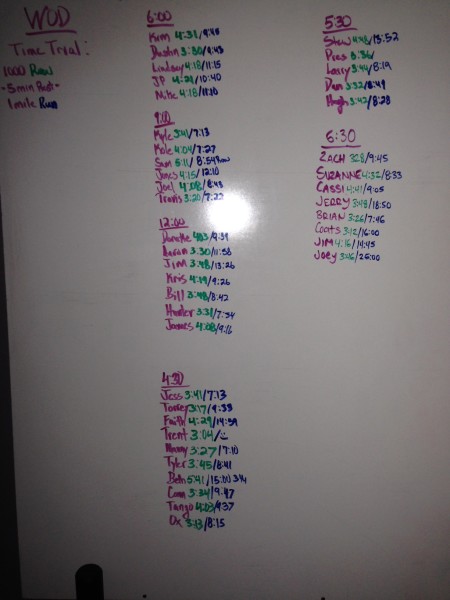 WOD
Time Trial:
1000 Row
-5 min Rest-
1 mile Run
6:00
Kim 4:31/9:48
Dustin 3:30/9:43
Lindsey 4:18/11:15
JP 4:29/10:40
Mike 4:18/11:20
9:10
Kyle 3:41/7:13
Kole 4:04/7:27
Sam 5:11/8:54 Row
Jones 4:15/12:10
Joel 4:08/8:43
Travis 3:20/7:22
12:00
Danette /9:39
Aaron 3:30/11:58
Jim 3:48/13:26
Kris 4:19/9:26
Bill 3:48/8:42
Hunter 3:31/7:54
James 4:08/9:16
4:30
Jess 3:41/7:13
Torrey 3:17/9:38
Faith 4:29/14:59
Trent 3:04/
3:27/7:10
Tyler 3:45/8:41
Beth 5:41/15:00 3/4
Conn 3:34/9:47
Tango 4:03/9:37
Ox 3:13/8:15
5:30
Shaw 4:48/13:52
Pres 3:36/
Larry 3:44/8:19
Dan 3:32/8:49
Hugh 3:42/8:28
6:30
ZACH 3:28/9:45
SUZANNE 4:32/8:33
CASSI 4:41/9:05
JERRY 3:48/18:50
BRIAN 3:26/7:46
Coats 3:12/16:00
JIM 4:16/14:45
JOEY 3:46/25:00